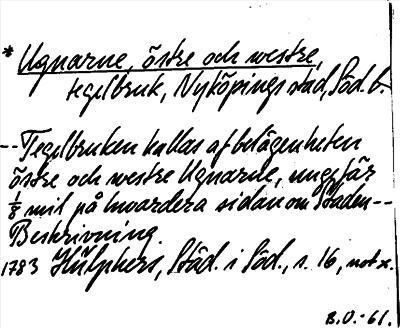 * Ugnarne, östre och westre,
tegelbruk, Nyköpings stad, Söd. b.
-- Tegelbruken kallas af belägenheten
östre och westre Ugnarne, ungefär
1/8 mil på hwardera sidan om Staden --
Beskrivning.
1783 Hülphers, Städ. i Söd., s. 16, not x.
B.O.-61.